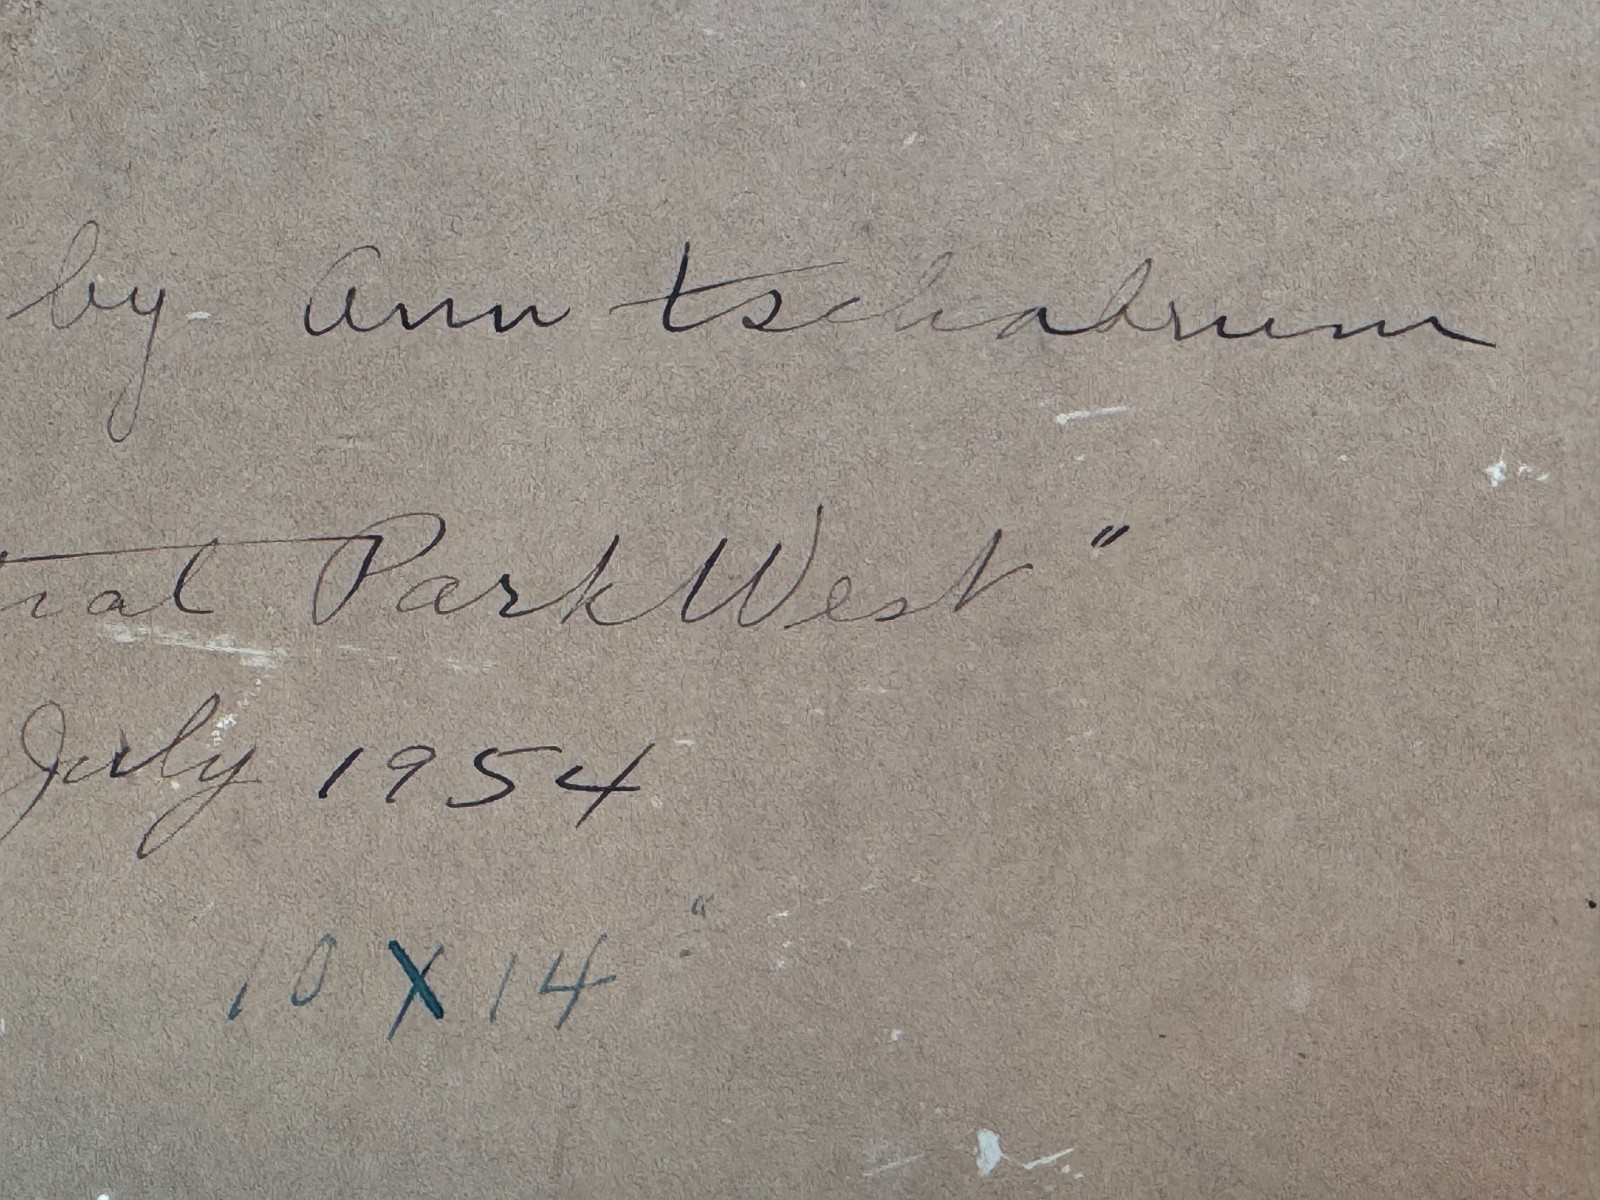 by Ann Tschabrum
tral Park West"
July 1954
10 X 14"